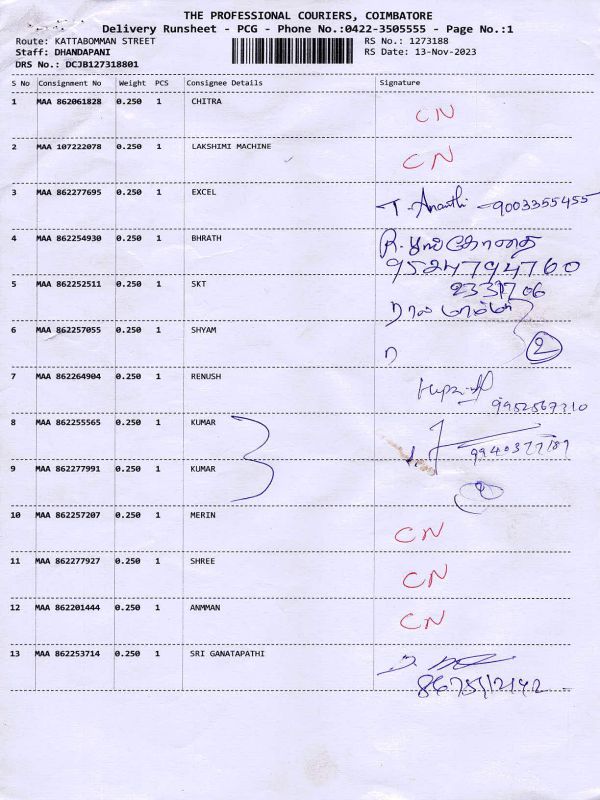 THE PROFESSIONAL COURIERS, COIMBATORE
Delivery Runsheet - PCG - Phone No.:0422-3505555 - Page No.:1
Route: KATTABOMMAN STREET RS No.: 1273188
Staff: DHANDAPANI RS Date: 13-Nov-2023
DRS No.: DCJB127318801
S No Consignment No Weight PCS Consignee Details Signature
1 MAA 862061828 0.250 1 CHITRA CN
2 MAA 107222078 0.250 1 LAKSHIMI MACHINE CN
3 MAA 862277695 0.250 1 EXCEL T. Ananthi - 9003355455
4 MAA 862254930 0.250 1 BHRATH R.
9524794760
5 MAA 862252511 0.250 1 SKT
6 MAA 862257055 0.250 1 SHYAM 2
7 MAA 862264904 0.250 1 RENUSH
8 MAA 862255565 0.250 1 KUMAR
9 MAA 862277991 0.250 1 KUMAR
10 MAA 862257207 0.250 1 MERIN CN
11 MAA 862277927 0.250 1 SHREE CN
12 MAA 862201444 0.250 1 ANMMAN CN
13 MAA 862253714 0.250 1 SRI GANATAPATHI